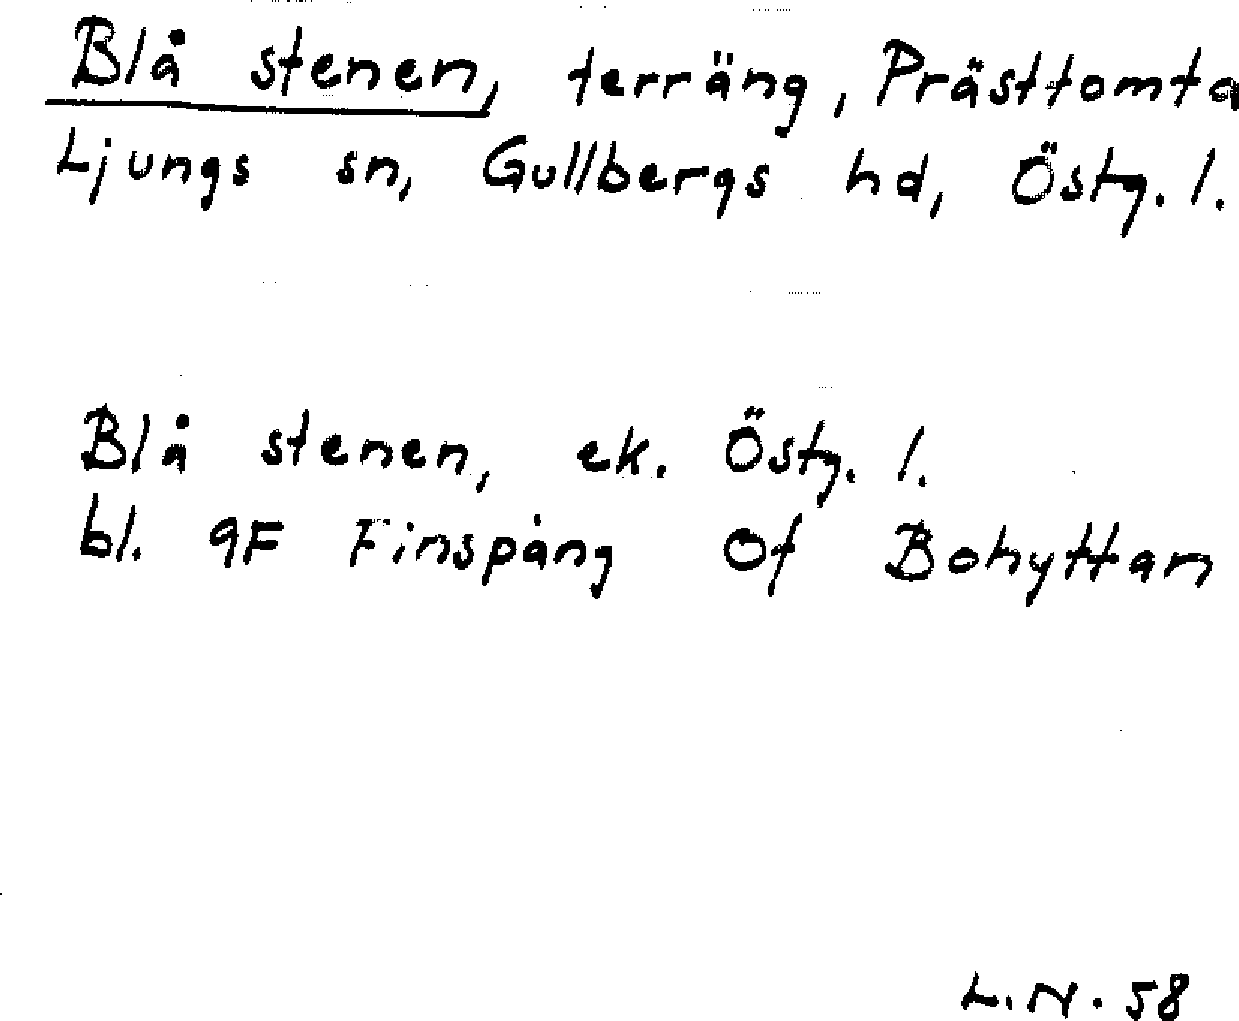 Blå stenen, terräng, Prästtomta
Ljungs sn, Gullbergs hd, Östg. l.
Blå stenen, ek. Östg. l.
bl. 9F Finspång 0f Bohyttan
L.N. 58